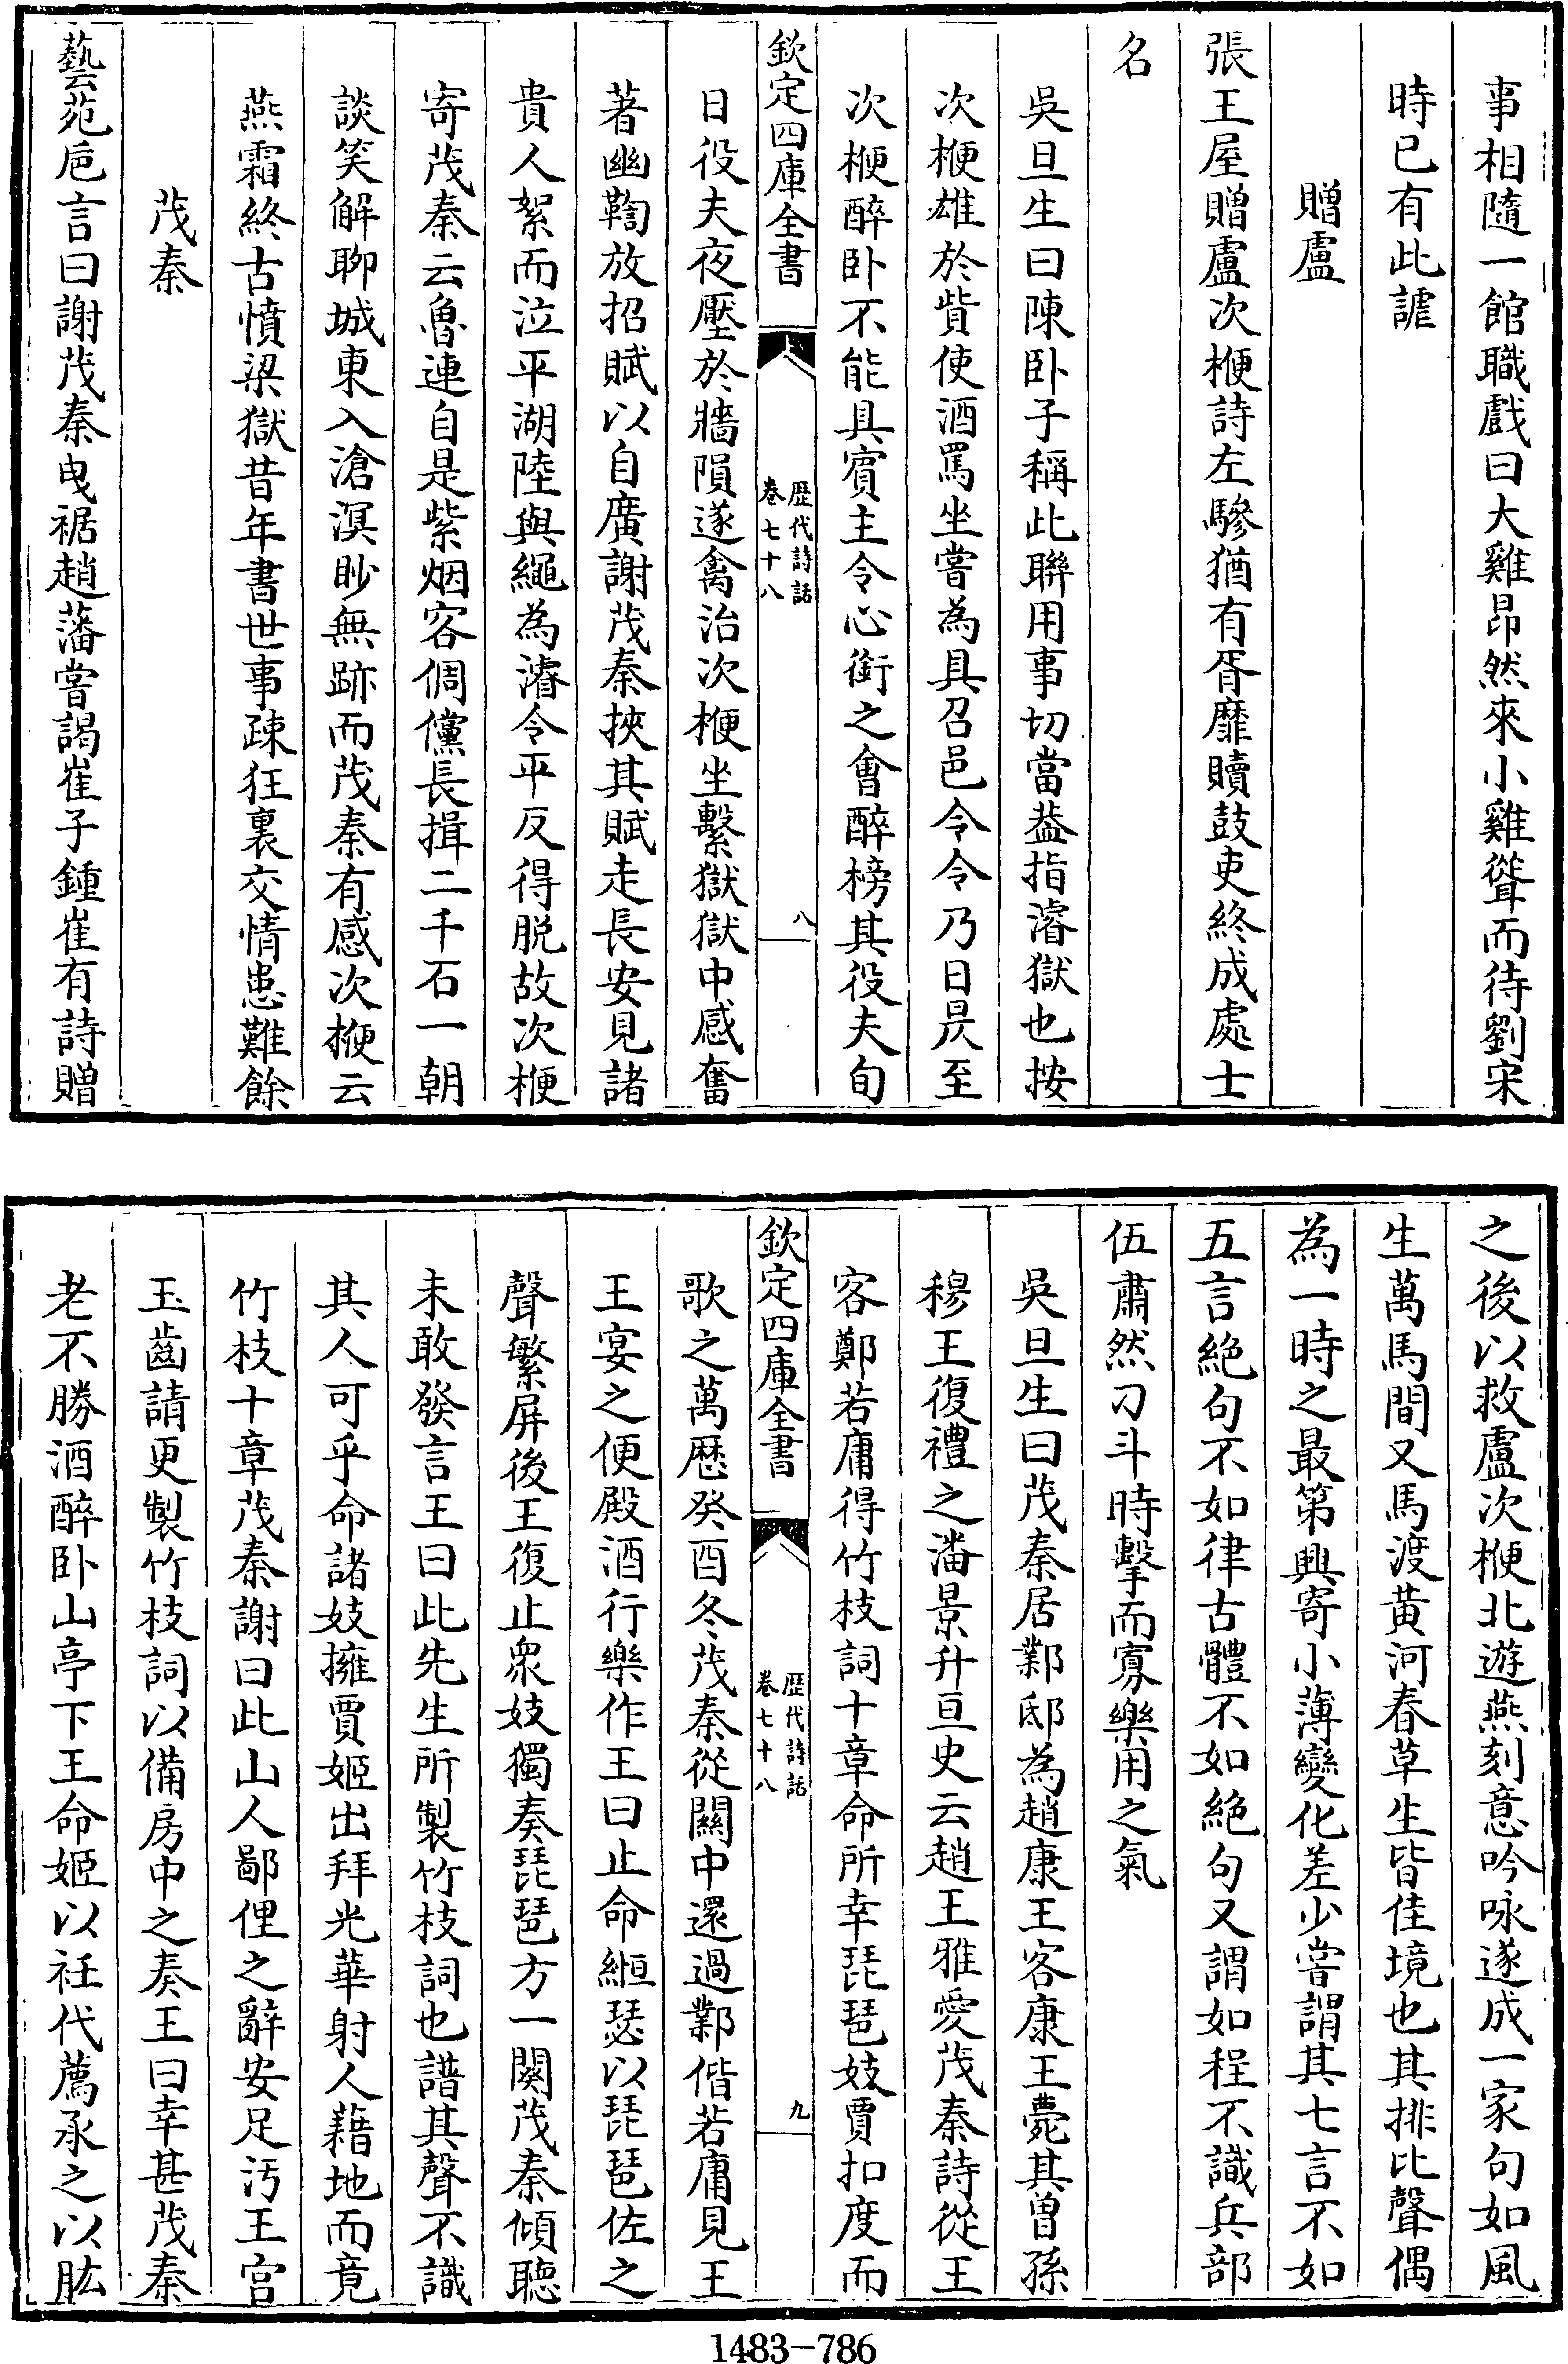 事相隨一館職戲曰大雞昂然來小雞聳而待劉宋
時已有此謔
贈盧
張王屋贈盧次楩詩左驂猶有胥靡贖鼓吏終成處士
名
吳旦生曰陳卧子稱此聯用事切當葢指濬獄也按
次楩雄於貲使酒罵坐嘗為具召邑令令乃日昃至
次楩醉卧不能具賓主令心銜之會醉榜其役夫旬
欽定四庫全書
歴代詩話
卷七十八
八
日役夫夜壓於牆隕遂禽治次楩坐繫獄獄中感奮
著幽鞫放招賦以自廣謝茂秦挾其賦走長安見諸
貴人絮而泣平湖陸與繩為濬令平反得脱故次楩
寄茂秦云魯連自是紫烟客倜儻長揖二千石一朝
談笑解聊城東入滄溟眇無跡而茂秦有感次楩云
燕霜終古憤梁獄昔年書世事疎狂裏交情患難餘
茂秦
藝苑巵言曰謝茂秦曳裾趙藩嘗謁崔子鍾崔有詩贈
之後以救盧次楩北遊燕刻意吟咏遂成一家句如風
生萬馬間又馬渡黃河春草生皆佳境也其排比聲偶
為一時之最第興寄小薄變化差少嘗謂其七言不如
五言絶句不如律古體不如絶句又謂如程不識兵部
伍肅然刁斗時擊而寡樂用之氣
吳旦生曰茂秦居鄴邸為趙康王客康王薨其曽孫
穆王復禮之潘景升亘史云趙王雅愛茂秦詩從王
客鄭若庸得竹枝詞十章命所幸琵琶妓賈扣度而
欽定四庫全書
歴代詩話
卷七十八
九
歌之萬歴癸酉冬茂秦從關中還過鄴偕若庸見王
王宴之便殿酒行樂作王曰止命緪瑟以琵琶佐之
聲繁屏後王復止衆妓獨奏琵琶方一闋茂秦傾聽
未敢發言王曰此先生所製竹枝詞也譜其聲不識
其人可乎命諸妓擁賈姬出拜光華射人藉地而竟
竹枝十章茂秦謝曰此山人鄙俚之辭安足汚王宫
玉齒請更製竹枝詞以備房中之奏王曰幸甚茂秦
老不勝酒醉卧山亭下王命姬以袵代薦承之以肱
1483-786